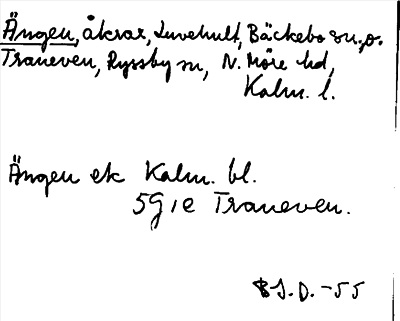 Ängen, åkrar, Luvehult, Bäckebo sn, o.
Traneven, Ryssby sn, N. Möre hd,
Kalm. l.
Ängen ek Kalm. bl.
5G 1e Traneven.
B J. D. -55